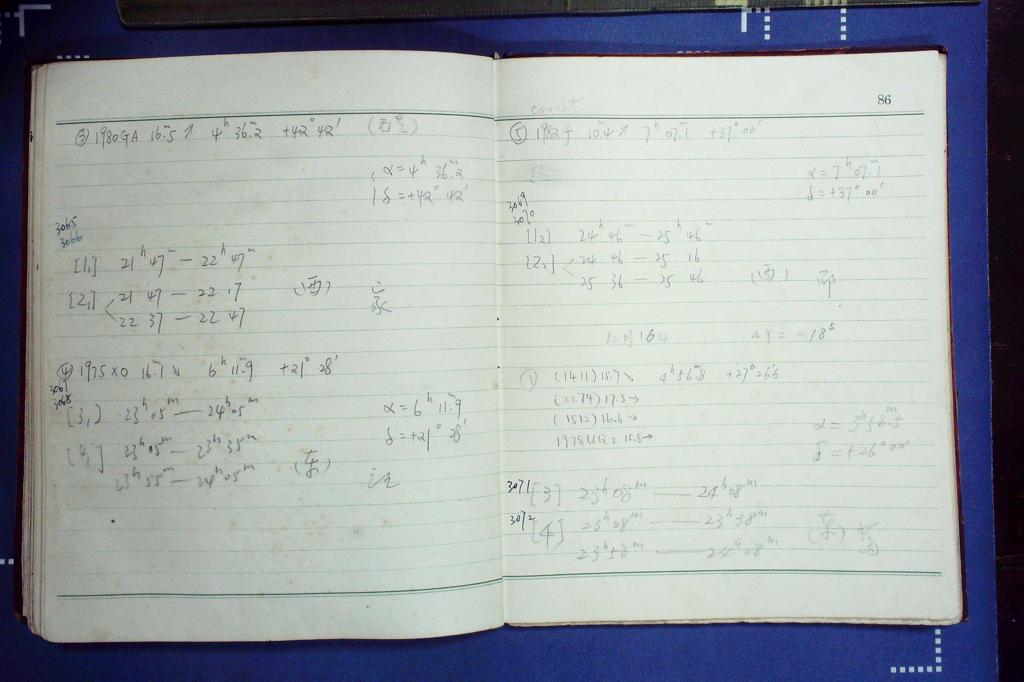 ③ 1980GA 16ᵐ.5↗ 4ʰ 36ᵐ.2 +42° 42′
α = 4ʰ 36ᵐ.2
δ = +42° 42′
3065
3066
[1,] 21ʰ 47ᵐ — 22ʰ 47ᵐ
[2,] 21 47 — 22 17 (西)
22 37 — 22 47
④ 1975XO 16ᵐ.1↘ 6ʰ 11ᵐ.9 +21° 28′
3067
3068
[3,] 23ʰ 05ᵐ — 24ʰ 05ᵐ
α = 6ʰ 11ᵐ.9
δ = +21° 28′
[4,] 23ʰ 05ᵐ — 23ʰ 35ᵐ
23ʰ 55ᵐ — 24ʰ 05ᵐ (东)
86
comet
⑤ 1982f 10ᵐ.4↗ 7ʰ 07ᵐ.1 +37° 00′
α = 7ʰ 07ᵐ.1
δ = +37° 00′
3069
3070
[1₂] 24ʰ 46ᵐ — 25ʰ 46ᵐ
[2₂] 24 46 — 25 16
25 36 — 25 46 (西)
12月16日 ΔT = -18ˢ
① (1411) 15.7↘ 4ʰ 56ᵐ.8 +27° 26.6
(2274) 17.3→
(1512) 16.6→
1978UQ2 15.8→
α = 3ʰ 58ᵐ.5
δ = +26° 00′
3071 [3] 23ʰ 08ᵐ — 24ʰ 08ᵐ
3072 [4] 23ʰ 08ᵐ — 23ʰ 38ᵐ (东)
23ʰ 58ᵐ — 24ʰ 08ᵐ